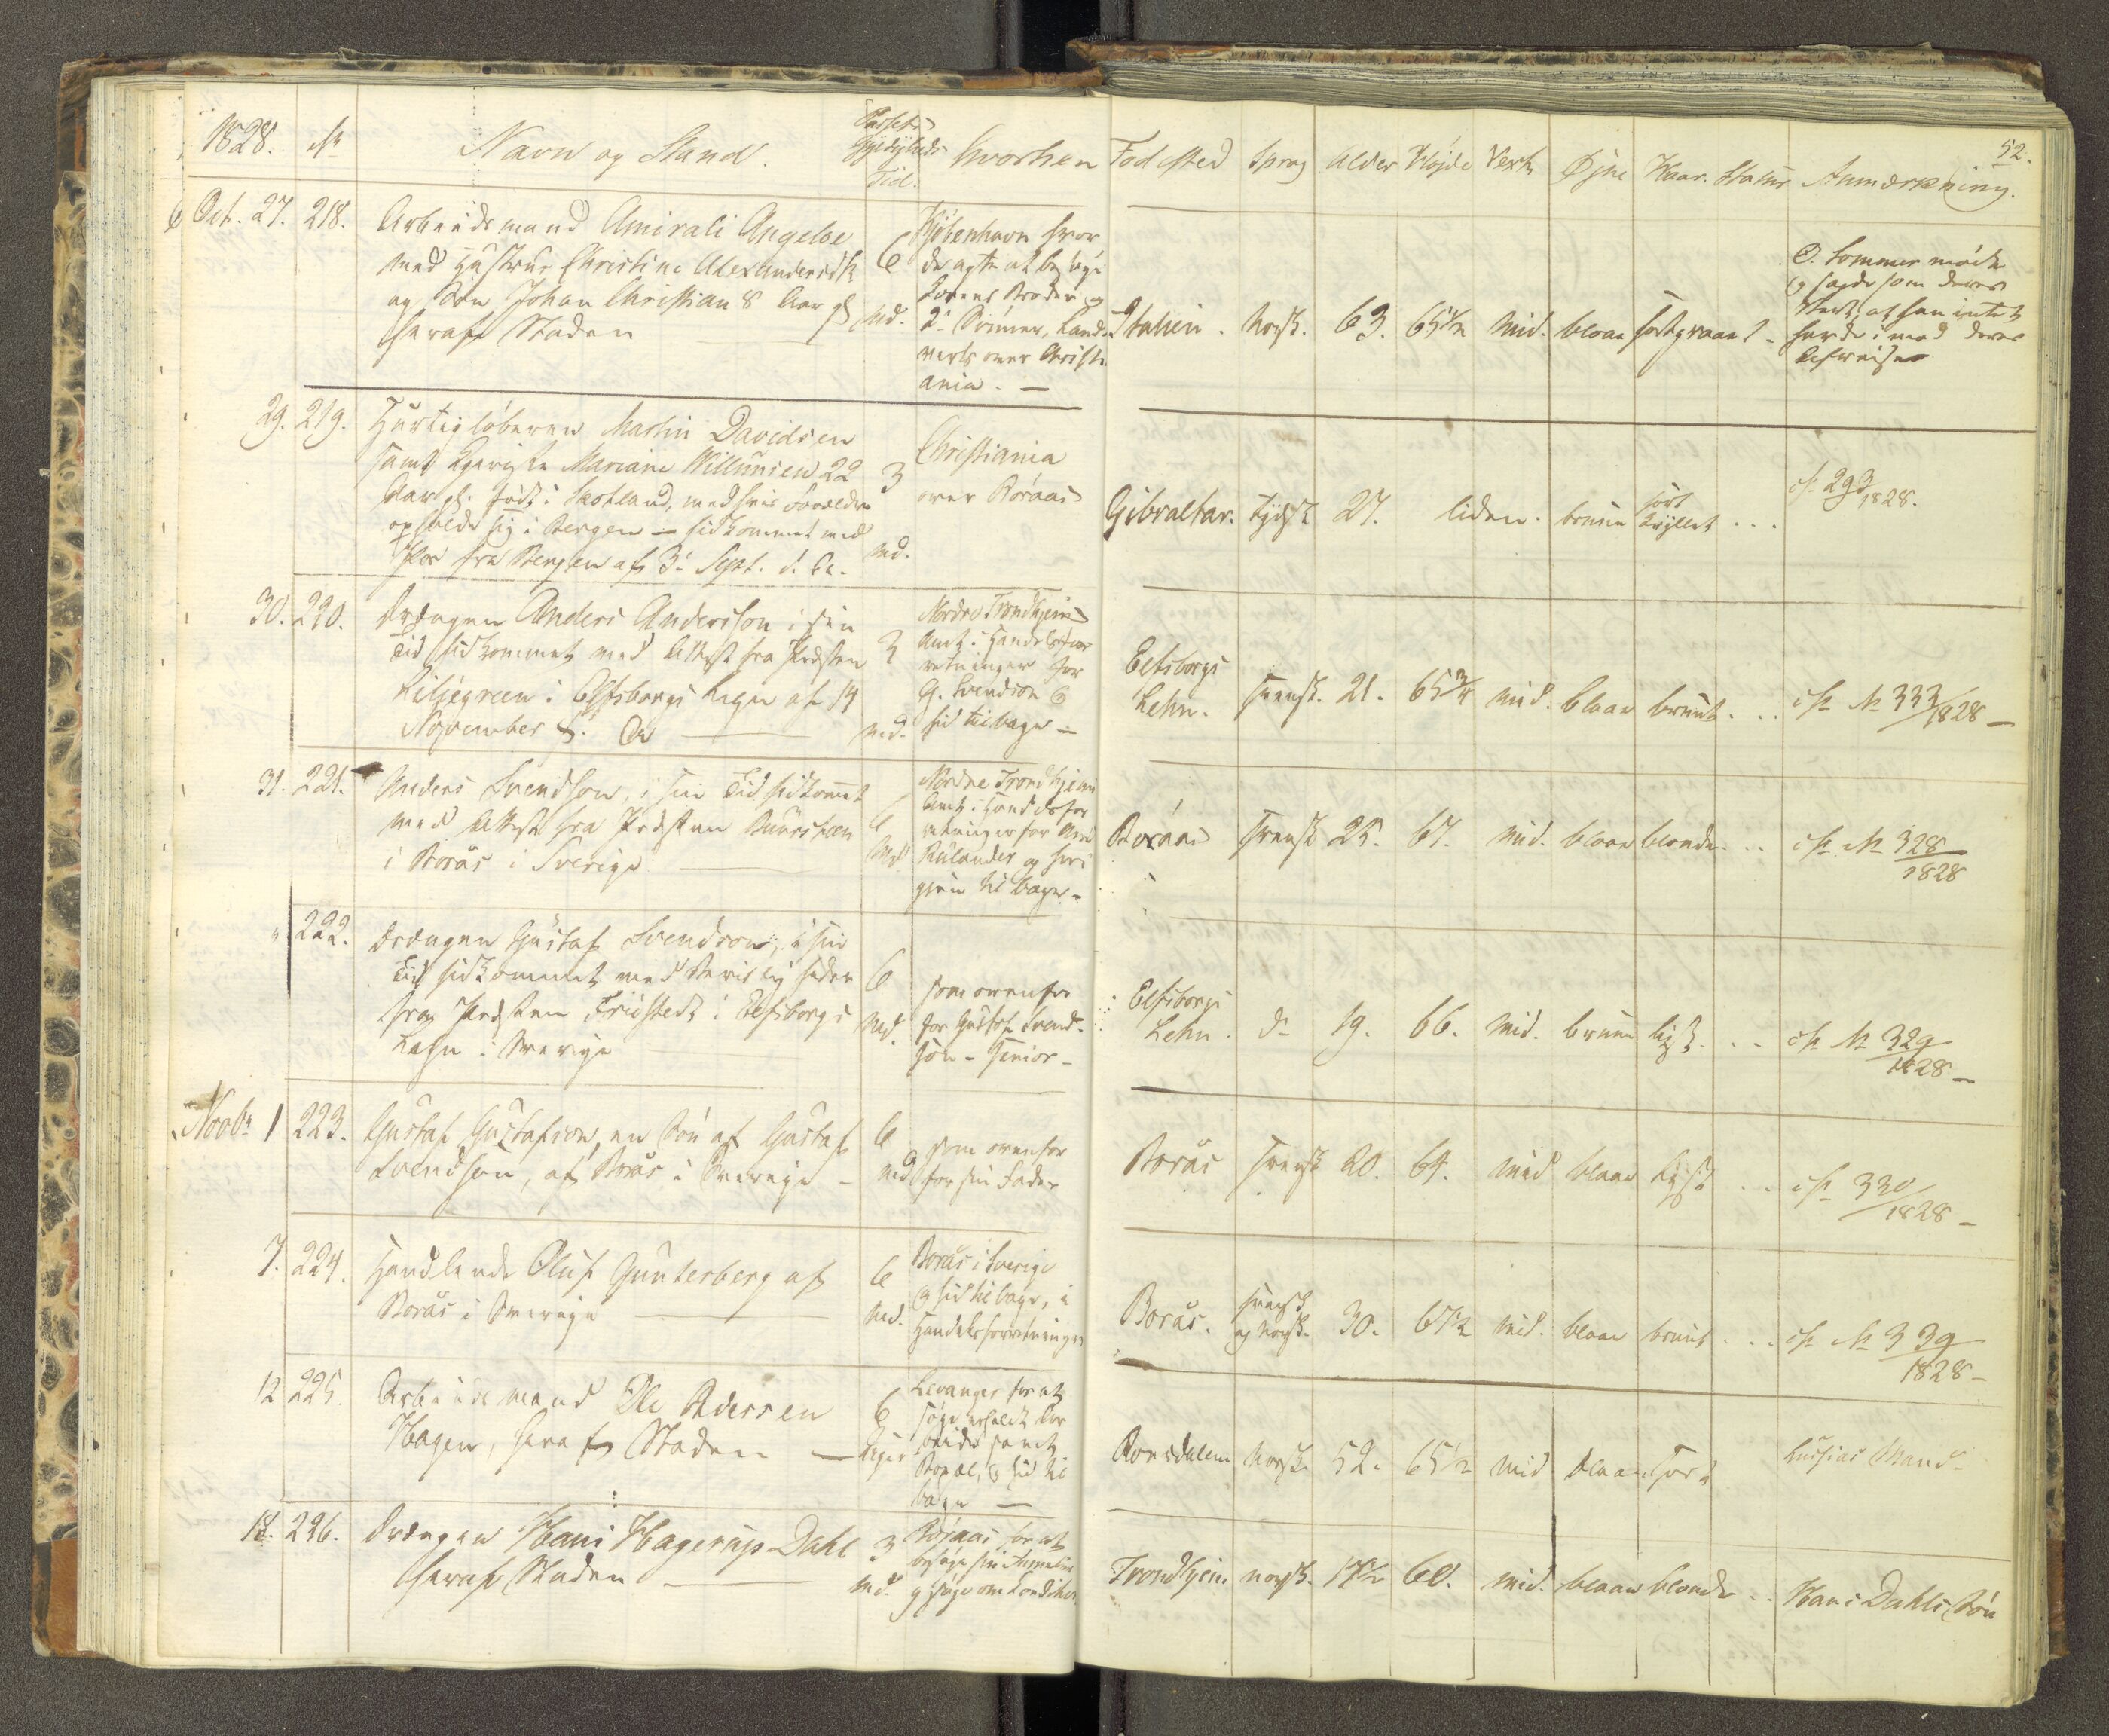 52.
1828. № Navn og Stand. Passets Gyldigheds Tid. hvorhen Fødested Sprog Alder Højde Vext Øjne Haar. Statur Anmærkning.
Oct. 27. 218. Arbeidsmand Amirali Angeloe
med Hustrue Christine Alexandersdtr
og Søn Johan Christian 8 Aar gl
heraf Staden
6 Md.
Kjøbenhavn hvor
de agte at besøge
Konens Broder og
landeverts over Christi-
ania. —
Italien. norsk. 63. 65½ mid. blaae sortgraant -
29. 219. Hurtigløberen Martin Davidsen
samt Kjæreste Mariane Willumsen 22
Aar gl. født i Skotland, med hvis Forældre
opholde sig i Bergen — hidkommet med
Pas fra Bergen af 3. Sept. d. A.
3 Md.
Christiania
over Röraas
Gibraltar. tydsk 27. liden. brune sort krøllet ...
cfr 293/1828.
30. 220. Drængen Anders Andersson i sin
Tid hidkommet med Attest fra Præsten
Liljegreen i Elfsborgs Lehn af 14
November f. A.
3 Md.
Nordre Trondhjems
Amt i Handelsfor
retninger for
G. Svendson &
hid tilbage —
Elfsborgs
Lehn. svensk. 21. 65¾ mid. blaae bruunt...
cfr № 333/1828 —
31. 221. Anders Svendson, i sin Tid hidkommet
med Attest fra Præsten
i Borås i Sverige
6 Md.
Nordre Trondhjems
Amt i Handelsfor
retninger for
Rulander og her
igjen tilbage. —
Boraas svensk 25. 67. mid. blaae blonde...
cfr № 328/1828
" 222. Drængen Gustaf Svendson, i sin
Tid hidkommet med
fra Præsten Fristedt i Elfsborgs
Lehn i Sverige
6 Md.
som ovenfor
for Gustaf Svend-
son - Senior -
Elfsborgs
Lehn. do 19. 66. mid. brune lyst...
cfr № 329/1828 —
Novbr 1 223. Gustaf Gustafson, en Søn af Gustaf
Svendson, af Borås i Sverige -
6 Md
som ovenfor
for sin Fader
Borås svensk 20. 64. mid blaae lyst ...
cfr 330/1828 —
7. 224. Handlende Oluf Gunterberg af
Borås i Sverige
6 Md.
Borås i Sverige
& hid tilbage, i
Handelsforretninger
Borås. svensk og norsk. 30. 67½ mid. blaae bruunt...
cfr № 339/1828 —
12 225. Arbeidsmand Ole Pedersen
Hagen, heraf Staden —
6 Uger
Levanger for at
søge
Arbeide samt
& hid til
bage —
Romsdalen norsk. 52. 65½ mid blaae sort
18. 226. Drængen Hans Hagerup Dahl
heraf Staden
3 Md.
Röraas for at
besøge sin Familie
& søge om Condition
Trondhjem norsk. 17½ 60. mid. blaae blonde..
Hans Dahls Søn